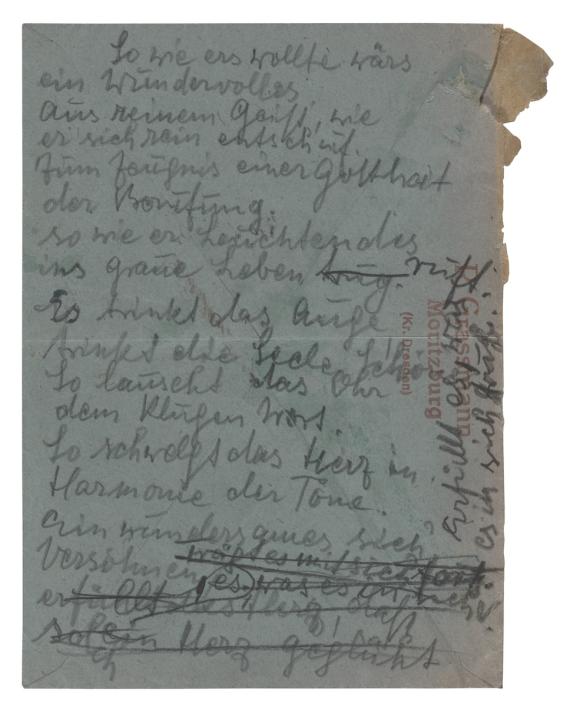 So wie ers wollte wärs
ein Wundervolles
Aus reinem Geist, wie
er sich rein entschuf.
Zum Zeugnis einer Gottheit
der Berufung.
so wie er Leuchtendes
ins graue Leben trug. ruft.
Es trinkt das Auge
trinkt die Seele
So lauscht das Ohr
dem klugen Wort.
So schwelgt das Herz in
Harmonie der Töne.
Ein wundersames sich
Versöhnen
erfüllt das Herz, daß
Herz geglüht
erfüllt es was
es in sich
Grassmann
Moritzburg
(Kr. Dresden)